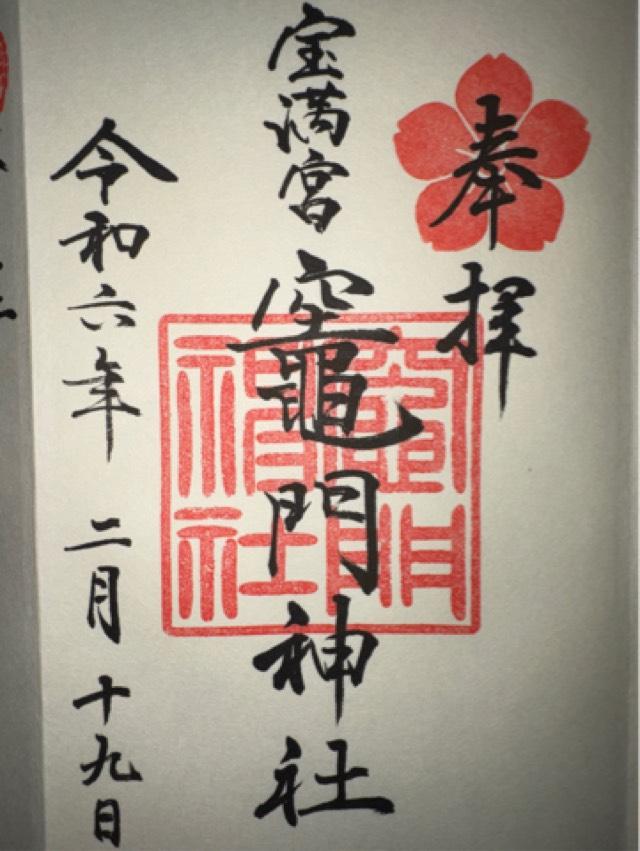 奉拝
宝満宮 竈門神社
竈門神社
令和六年 二月 十九日